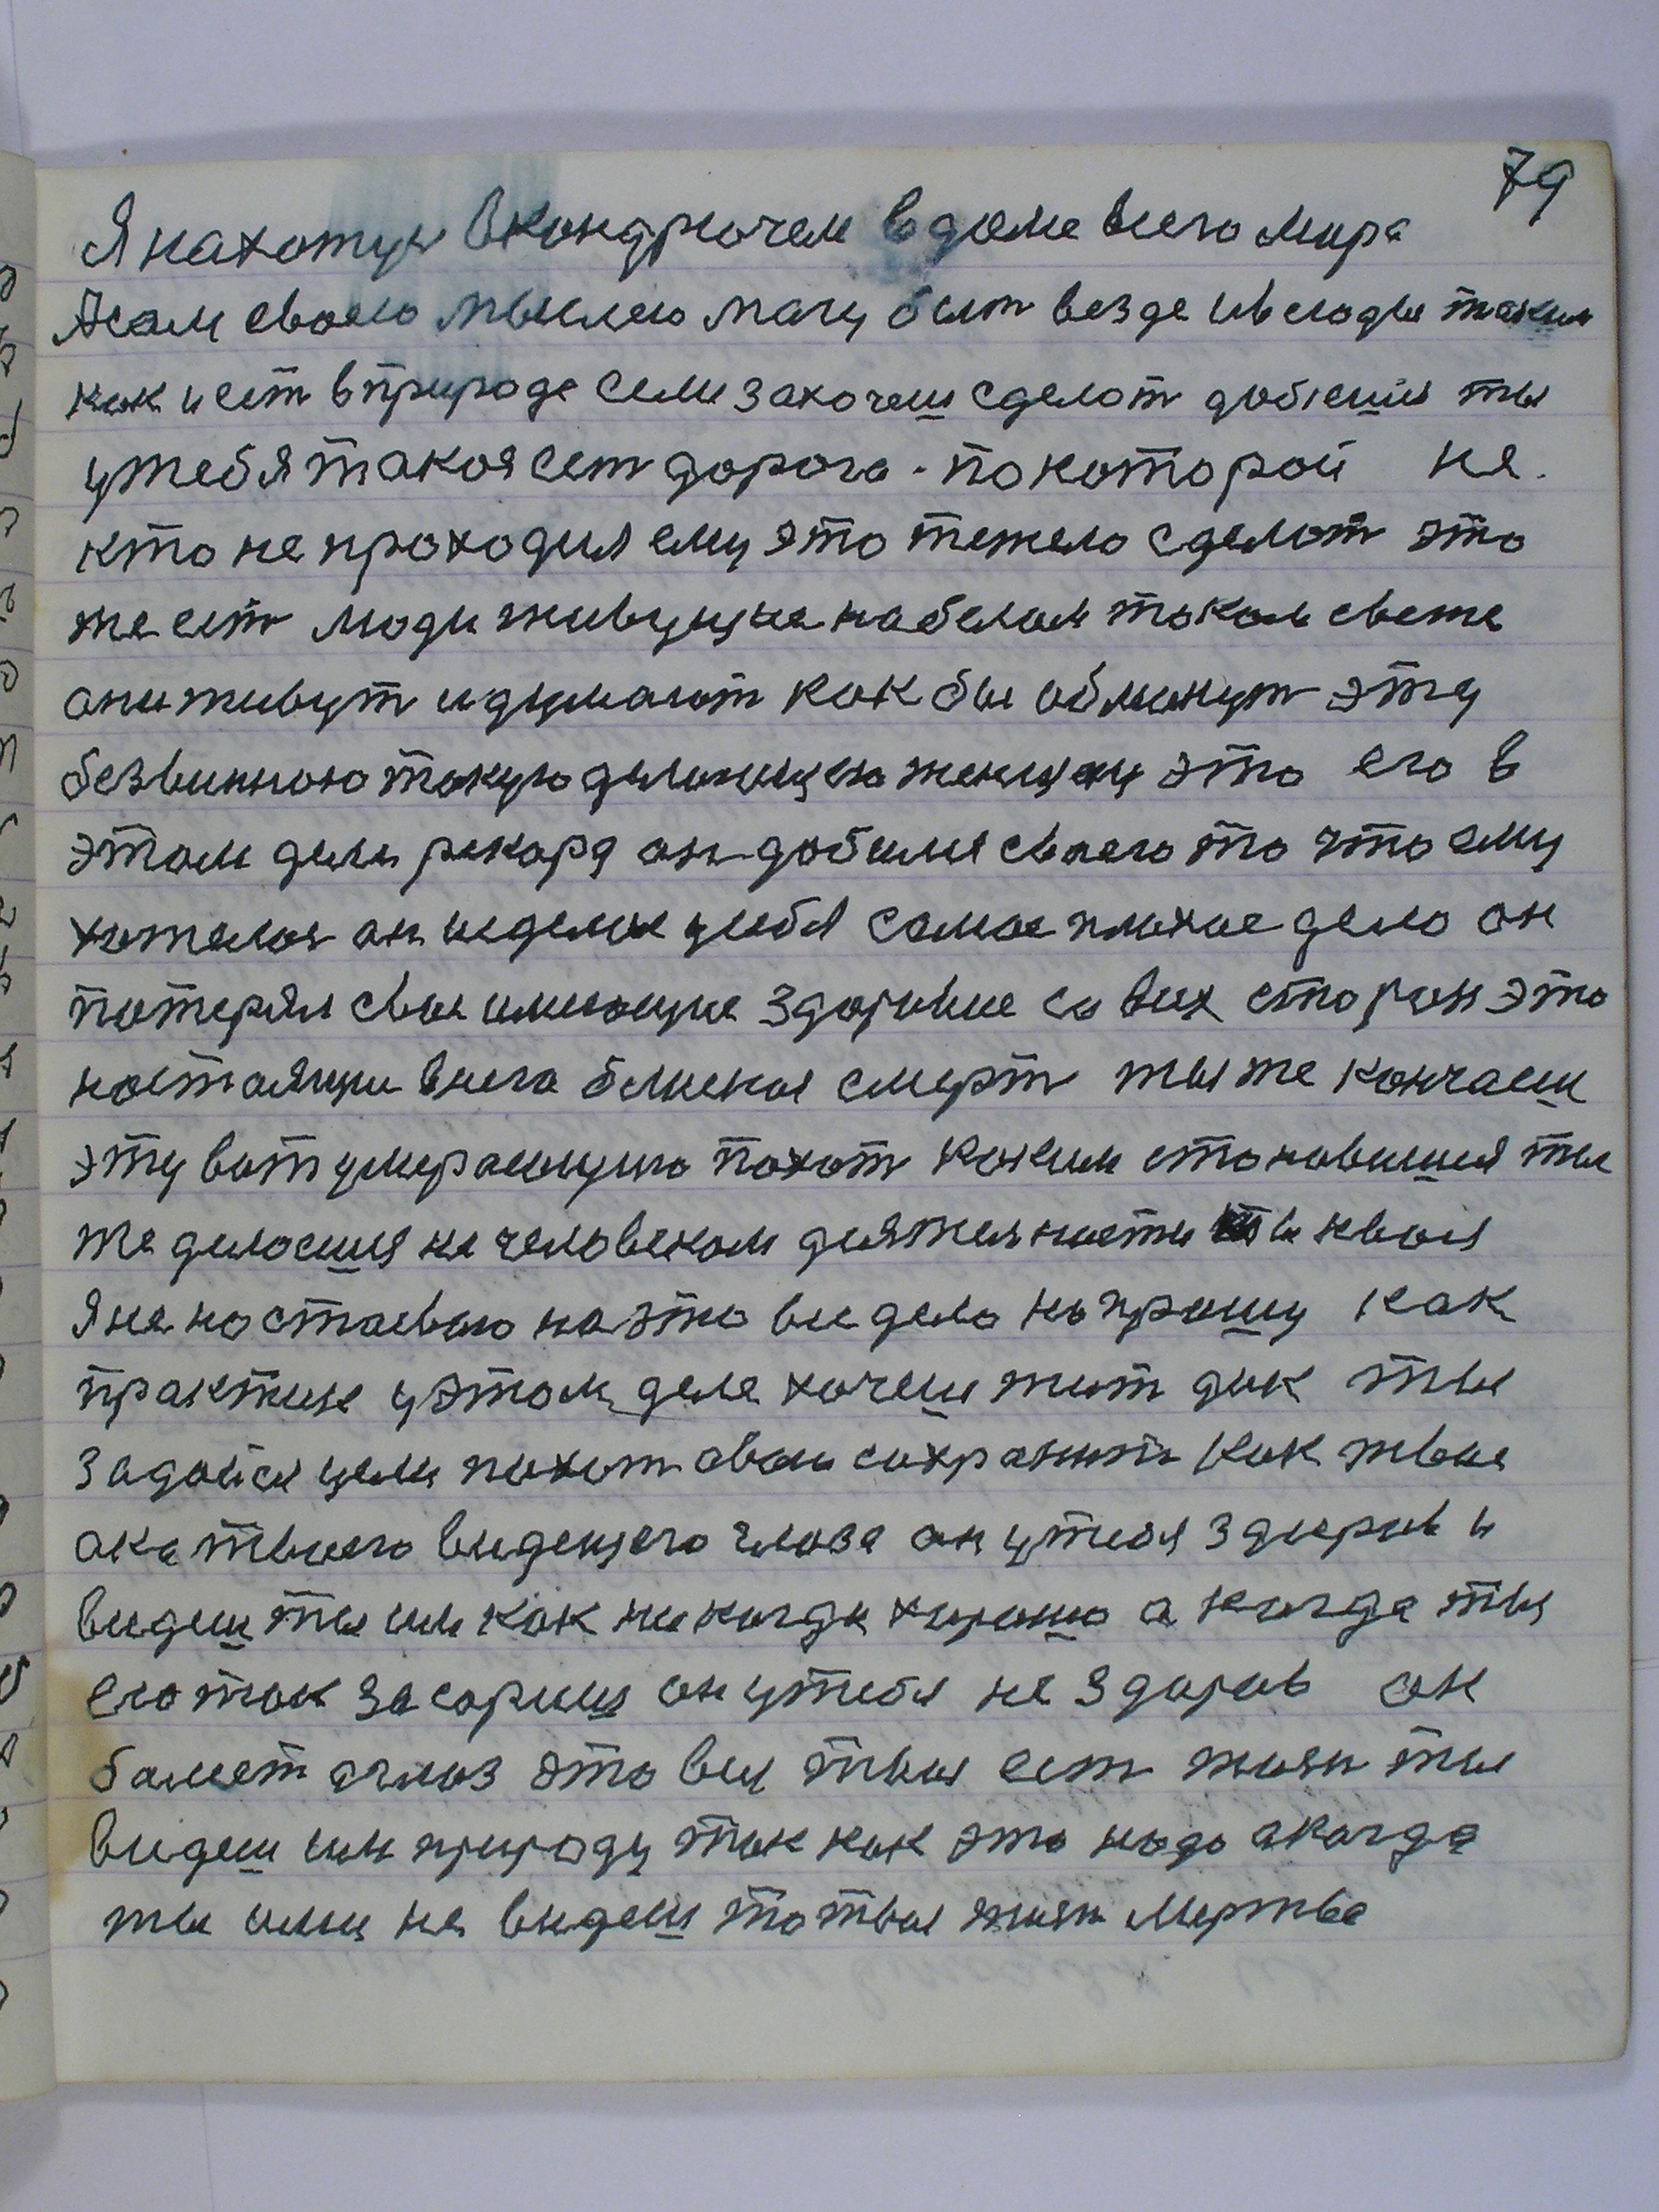 79
Я нахотус в кондрючем в доме всего мира
Я сам своею мыслею магу быт везде и всюды таким
как и ест в природе если захочеш сделат добiешся ты
у тебя такоя ест дорога - по которой не
кто не проходил ему это тежело сделат это
же ест люди живущие на белом таком свете
они живут и думают как бы обманут эту
безвинною такую женщину это его в
этом деле рекорд он добился своего то что ему
хателос он самое плахое дело он
потерял свое имеющие здоровие со всех сторон это
настоящие в него смерт ты же кончаеш
эту вот умерающую похот каким становишся ты
же делаешся не человеком деятелности
Я не настаеваю на это все дело но прошу как
практик у этом деле хочеш жит дак ты
задайся цели похот сваю сохранить как твое
ока твоего видещего глаза он у тебя здоров и
видеш ты им как некогда хорошо а когда ты
его так засориш он у тебя не здоров он
болеет а глаз это вся твоя ест жизн ты
видеш им природу так как это надо а когда
ты ими не видеш то твоя жизн мертва